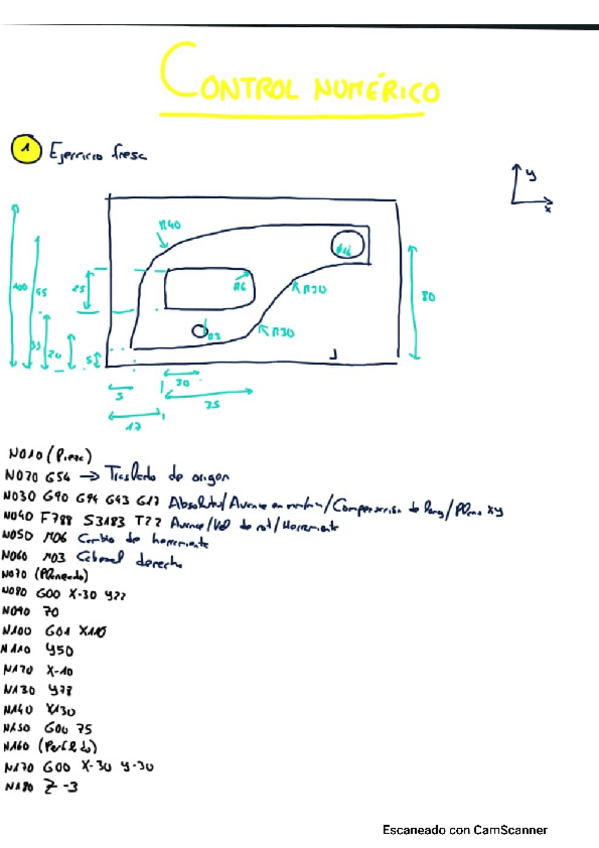 CONTROL NUMÉRICO
1 Ejercicio fresa
y
x
R40
R6
R20
R30
100
95
25
35
20
5
80
5
30
35
17
N010 (Pieza)
N020 G54 → Traslado de origen
N030 G90 G94 G43 G17 Absolutas/Avance en mm/min/Compensación de long/Plano XY
N040 F788 S3183 T22 Avance/Vel de rot/Herramienta
N050 M06 Cambio de herramienta
N060 M03 Cabezal derecha
N070 (Planeado)
N080 G00 X-30 Y22
N090 Z0
N100 G01 X110
N110 Y50
N120 X-10
N130 Y78
N140 X130
N150 G00 Z5
N160 (Perfilado)
N170 G00 X-30 Y-30
N180 Z-3
Escaneado con CamScanner